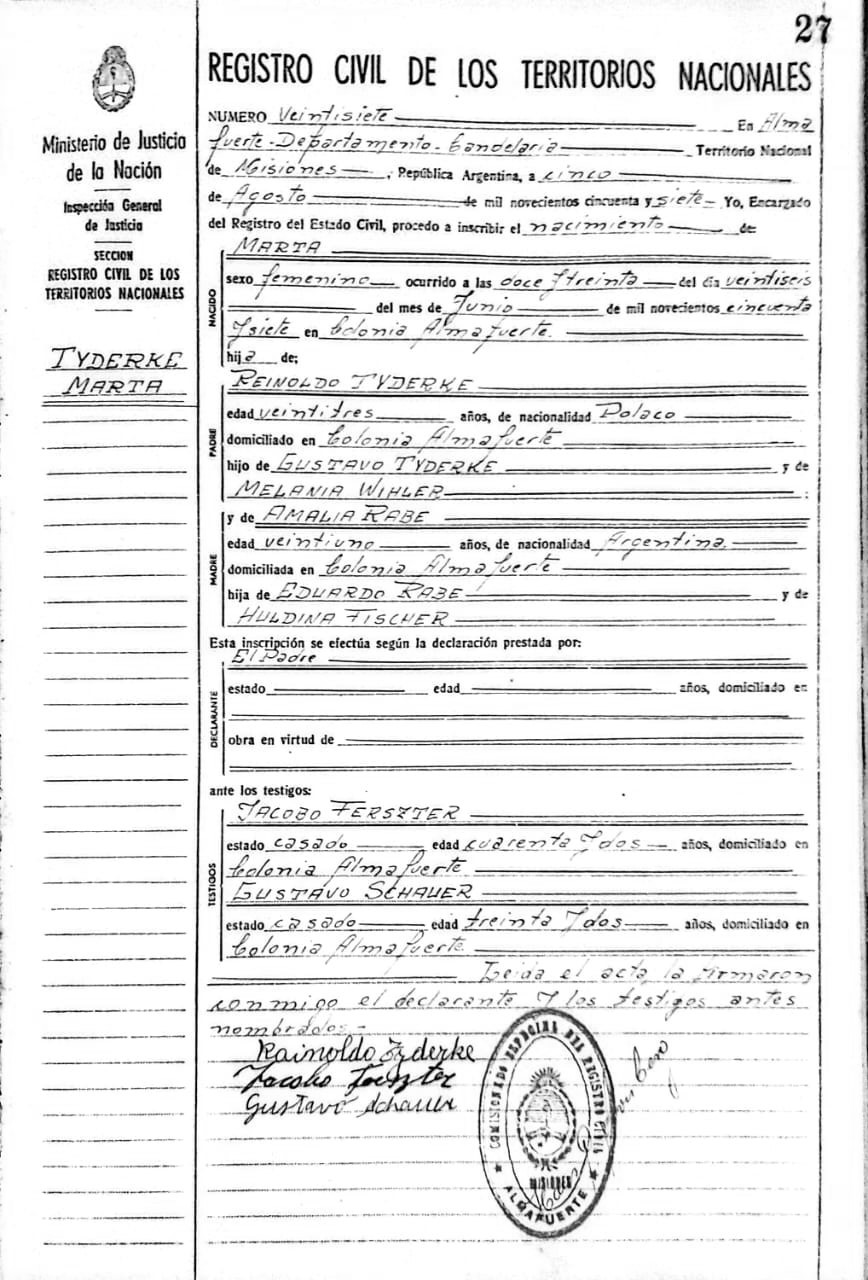 27
REGISTRO CIVIL DE LOS TERRITORIOS NACIONALES
Ministerio de Justicia
de la Nación
Inspección General
de Justicia
SECCION
REGISTRO CIVIL DE LOS
TERRITORIOS NACIONALES
TYDERKE
MARTA
NUMERO Veintisiete En Alma
fuerte-Departamento-Candelaria Territorio Nacional
de Misiones, República Argentina, a cinco
de Agosto de mil novecientos cincuenta y siete- Yo, Encargado
del Registro del Estado Civil, procedo a inscribir el nacimiento de
NACIDO
MARTA
sexo femenino ocurrido a las doce y treinta del día veintiseis
del mes de Junio de mil novecientos cincuenta
y siete en Colonia Almafuerte.
hija de;
PADRE
REINOLDO TYDERKE
edad veintitres años, de nacionalidad Polaco
domiciliado en Colonia Almafuerte
hijo de GUSTAVO TYDERKE y de
MELANIA WIHLER
MADRE
y de AMALIA RABE
edad veintiuno años, de nacionalidad Argentina.
domiciliada en Colonia Almafuerte
hija de EDUARDO RABE y de
HULDINA FISCHER
Esta inscripción se efectúa según la declaración prestada por:
El Padre
DECLARANTE
estado edad años, domiciliado en
obra en virtud de
ante los testigos:
TESTIGOS
JACOBO FERSZTER
estado casado edad cuarenta y dos años, domiciliado en
Colonia Almafuerte
GUSTAVO SCHAUER
estado casado edad treinta y dos años, domiciliado en
Colonia Almafuerte
Leida el acta, la firmaron
conmigo el declarante y los testigos antes
nombrados.-
Rainoldo Tyderke
Jacobo Ferszter
Gustavo Schauer
COMISIONADO ESPECIAL DEL REGISTRO CIVIL
MISIONES
ALMAFUERTE